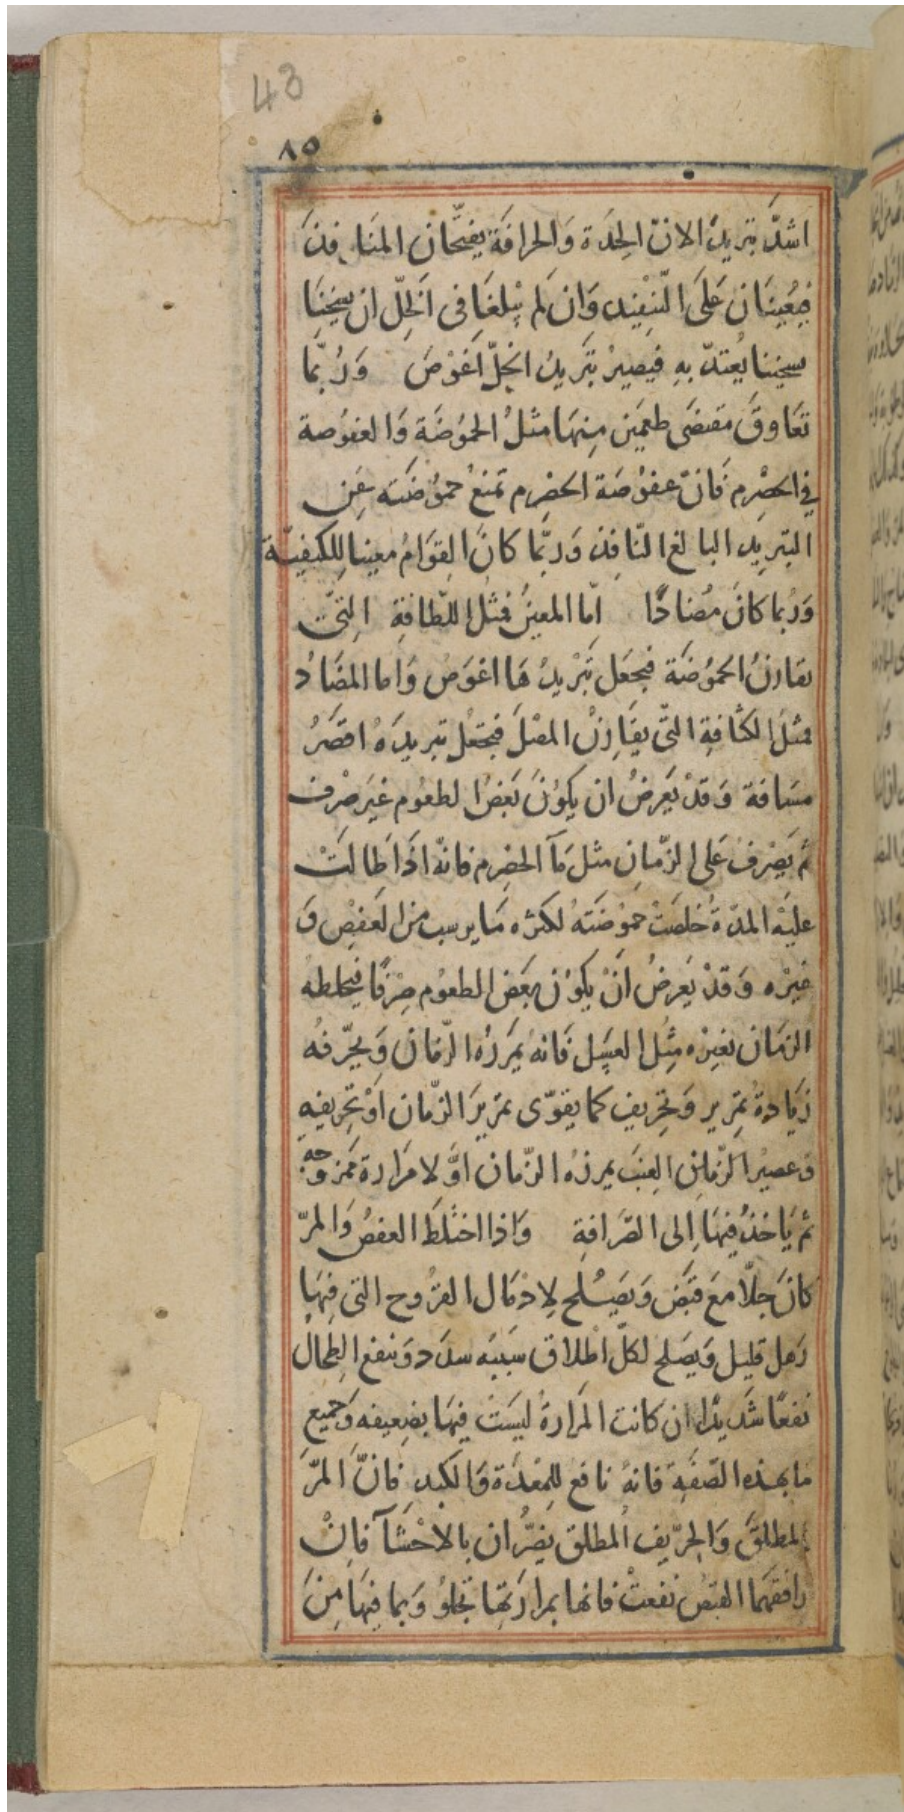 43
٨٥
اشدّ تبريدًا لانّ الحِدَة وَالحرافَة يفتّحان المنَافِذَ
فيُعِينَان عَلَى التّنفِيذ وَان لَم يَبْلغَا فى الخلّ ان يسخِنَا
تسخينا يُعتدّ بهِ فيصيرُ تبَرِيدُ الخلّ اَغوَصَ وَرُبمّا
تعَاوقَ مقتضَى طعمَين مِنهَا مثلُ الحمُوضَة وَالعفوُصة
فى الحصْرم فَانّ عفوُصَة الحصرم تمنعُ حموُضَتَه عَن
التبرِيد البالغ النّافِذ وَربَّما كانَ القِوَامُ معينا لِلكيفيّة
وَرُبما كانَ مُضادًا امّا المعينُ فمثلُ اللّطافةِ التِىّ
تقارنُ الحَموُضَة فيجعَل تَبْريدُهَا اغوَصُ وَاما المضَادُ
فمثلَ الكثافةِ التّى يقَارِنُ العفصَ فيجعَلُ تبريدَهُ اقصَرُ
مسَافة وَقدْ يَعرِضُ ان يكوُنَ بَعضُ الطعوُم غيَر صْرف
ثم يَصْرفُ عَلى الزّمانِ مثل مَآ الحِصرِم فانهّ اذَا طَالَتْ
عليَه المدّةُ خلصَتْ حموُضَتهُ لكثره مَا يرسب من العَفِصِ وَ
غيْره وَقدْ يَعرضُ اَنْ يكوُن بعَض الطعوُم صِرْفًا فيخلطهُ
الزمَان بغيْرِه مِثِلُ العَسَل فَانهُ يمَررُه الزّمَان وَيحرّفُه
زيَادةُ تمرير وَتحريف كما يقوّى تمَريرَ الزّمان اوَ تحرِيفهِ
وَ عصيُر الزمان العِنبَ يمررُه الزّمان اوَّلا مَرَارة ممَزوجه
ثم يَاخذُ فيهَا اِلى الصّرَافةِ وَاذا اختلَطَ العفصُ وَالمرّ
كانَ جلّاً مَعَ قَبضٍ وَيصَلح لِادمَال القرُوح التى فِيهَا
رَهل قليل وَيصَلح لكلّ اطلاق سَبَبَه سدَد وَينفع الطحال
نفعًا شَديدًا ان كانت المرَارةُ ليسَتْ فيهَا بضِعيفه وَجميع
ما بهذه الصّفَهِ فانهُ نافع للمِعدَة وَالكبدِ فانَّ المرّ
المطلقَ وَالحرّيف المطلق يضّرُان بالاحْشآ فاِنْ
وافقهَما القبضُ نفعتْ فانها بمرارَتِهَا تجلوُ وَبما فِيهَا مِنَ